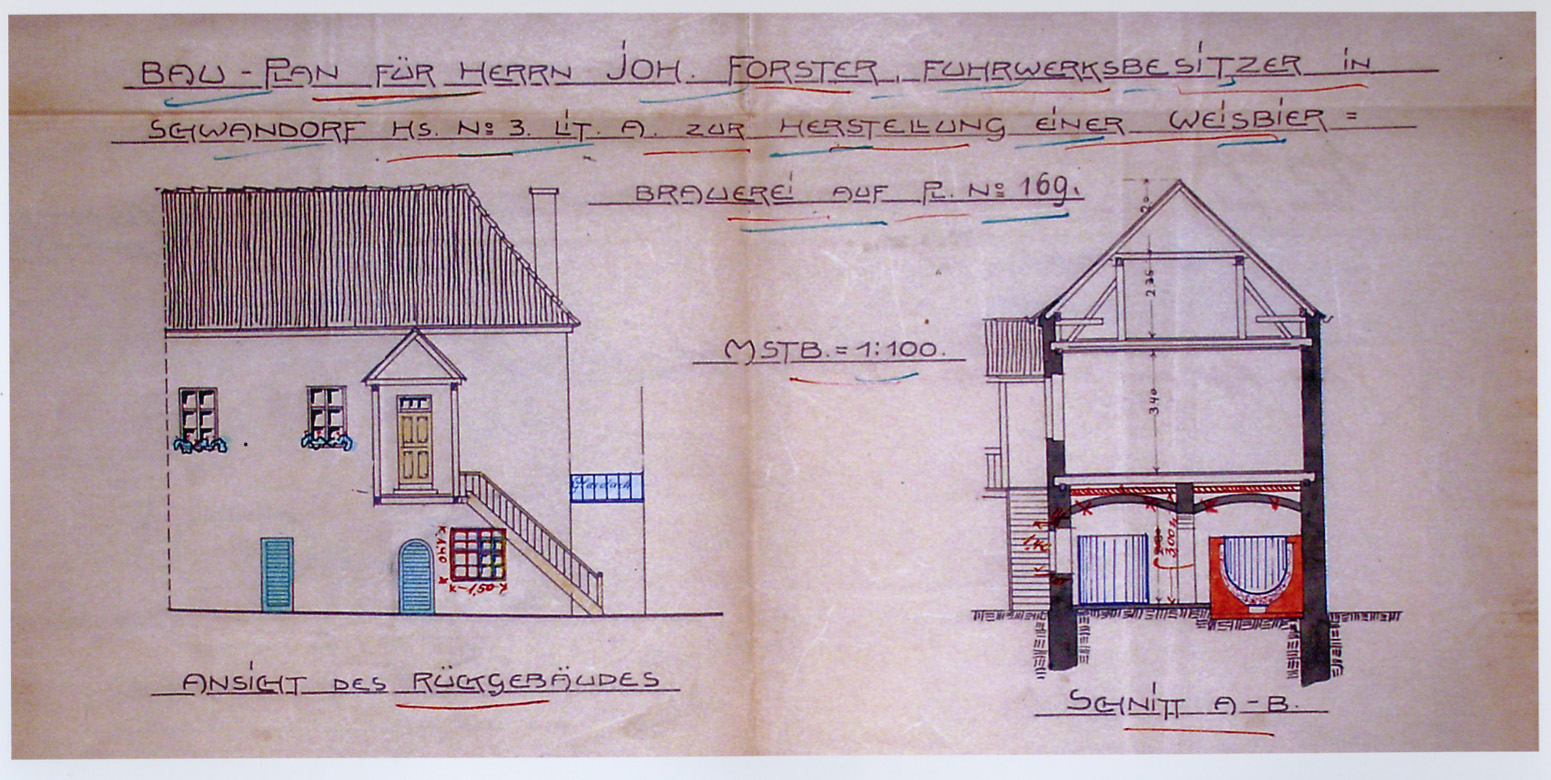 BAU - PLAN FÜR HERRN JOH. FORSTER, FUHRWERKSBESITZER IN
SCHWANDORF HS. No 3. LIT. A. ZUR HERSTELLUNG EINER WEISBIER =
BRAUEREI AUF PL. No 169.
MSTB. = 1:100.
2.35
3.40
1.40
1.50
1.40
3.00
ANSICHT DES RÜCKGEBÄUDES
SCHNITT A - B.